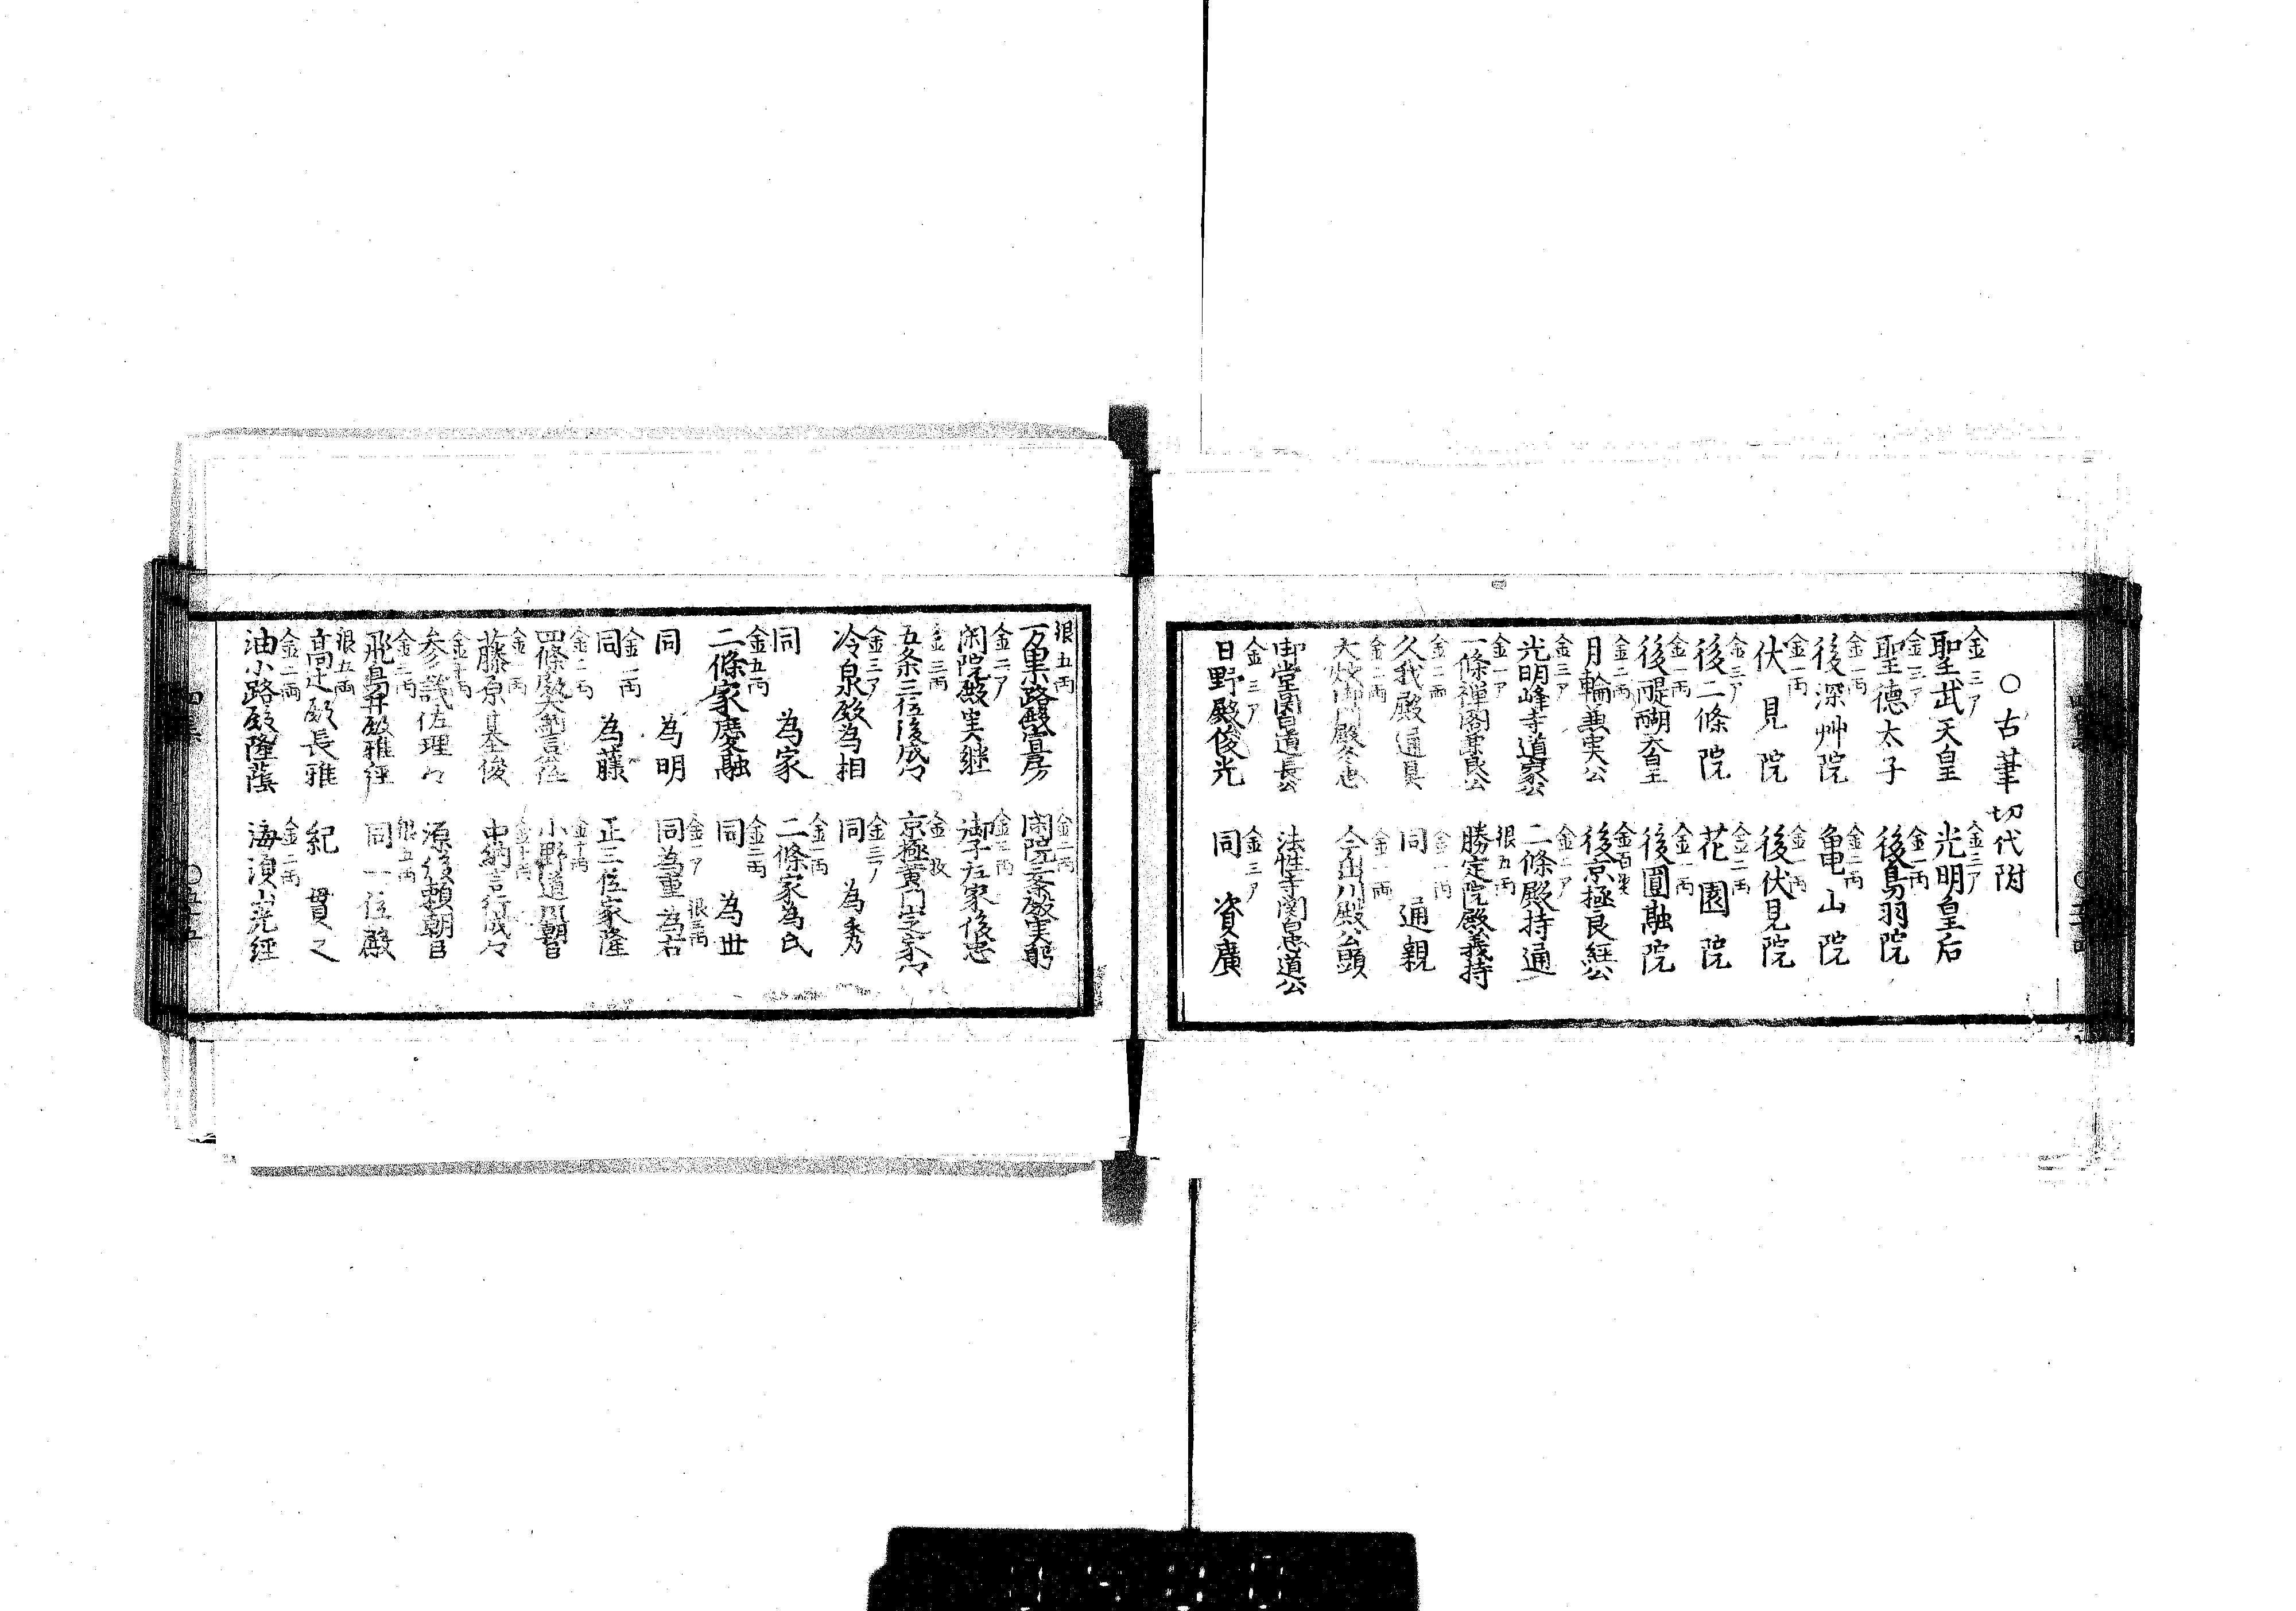 ○古筆切代附
金三ア
聖武天皇
金三ア
光明皇后
金三ア
聖德太子
金一両
後鳥羽院
金一両
後深艸院
金二両
亀山院
金一両
伏見院
金一両
後伏見院
金三ア
後二條院
金二両
花園院
金一両
後醍醐天皇
金一両
後圓融院
金二両
月輪兼実公
金百疋
後京極良経公
金三ア
光明峰寺道家公
金二ア
二條殿持通
金一ア
一條禅閤兼良公
银五両
勝定院殿義持
金一両
久我殿通具
金一両
同 通親
金一両
大炊御門殿冬忠
金一両
今出川殿公顕
御堂関白道長公
法性寺関白忠道公
金三ア
日野殿俊光
金三ア
同 資廣
银五両
万里路殿宣房
金二両
閑院三条殿実躬
金二ア
閑院殿実継
金三両
御子左家俊忠
金三両
五条三位俊成々
金一枚
京極黄門定家々
金三ア
冷泉殿為相
金三ア
同 為秀
同 為家
金一両
二條家為氏
金五両
二條家慶融
金二両
同 為世
同 為明
金一ア
同為重
银三両
為右
金一両
同 為藤
正三位家隆
金二両
四條殿大納言
金十両
小野道風朝臣
金一両
藤原基俊
金十両
中納言行成々
金十両
参議佐理々
源俊頼朝臣
金二両
飛鳥井殿雅経
银五両
同 一位殿
银五両
高辻殿長雅
紀 貫之
金二両
油小路殿隆蔭
金二両